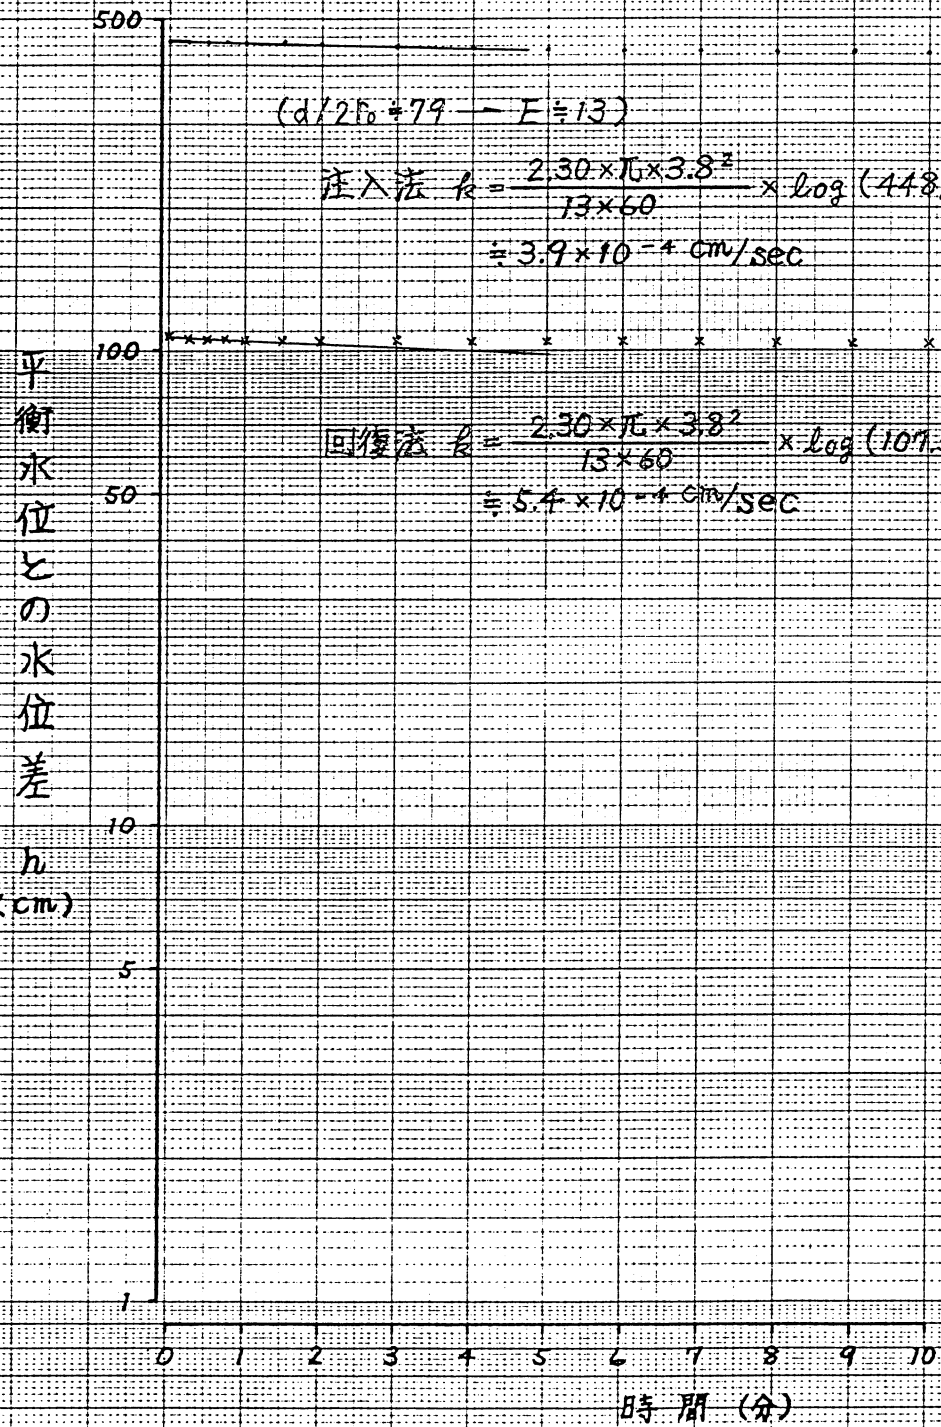 500
(d/2r₀≒79 — E≒13)
注入法 k = 2.30×π×3.8² / 13×60 × log (448.
≒ 3.9×10⁻⁴ cm/sec
100
回復法 k = 2.30×π×3.8² / 13×60 × log (107.
≒ 5.4×10⁻⁴ cm/sec
50
10
5
1
平衡水位との水位差 h
(cm)
0 1 2 3 4 5 6 7 8 9 10
時間 (分)